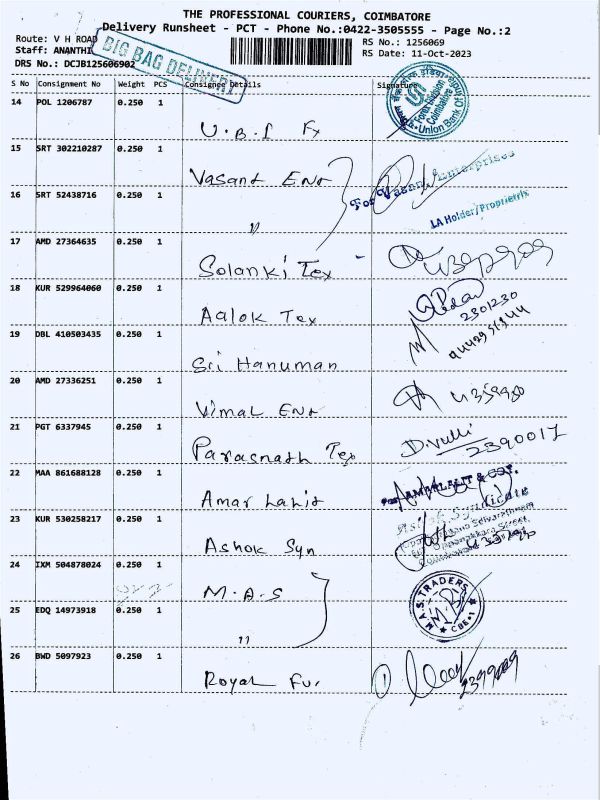 THE PROFESSIONAL COURIERS, COIMBATORE
Delivery Runsheet - PCT - Phone No.:0422-3505555 - Page No.:2
Route: V H ROAD
RS No.: 1256069
Staff: ANANTHI
RS Date: 11-Oct-2023
DRS No.: DCJB125606902
BIG BAG DELIVERY
S No Consignment No Weight PCS Consignee Details Signature
14 POL 1206787 0.250 1
U.B.I Fx
Forex Division
Coimbatore
Union Bank Of
15 SRT 302210287 0.250 1
Vasant Ent
For Vasant Enterprises
16 SRT 52438716 0.250 1
"
LA Holder/Proprietrix
17 AMD 27364635 0.250 1
Solanki Tex
18 KUR 529964060 0.250 1
Aalok Tex
2301230
19 DBL 410503435 0.250 1
Sri Hanuman
20 AMD 27336251 0.250 1
Vimal Ent
21 PGT 6337945 0.250 1
Parasnath Tex
2390017
22 MAA 861688128 0.250 1
Amar Lalit
For AMARLALIT & CO.
23 KUR 530258217 0.250 1
Ashok Syn
Ashok Syndicate
24 IXM 504878024 0.250 1
M.A.S
M.A.S. TRADERS
CBE-1
25 EDQ 14973918 0.250 1
"
26 BWD 5097923 0.250 1
Royal Fur